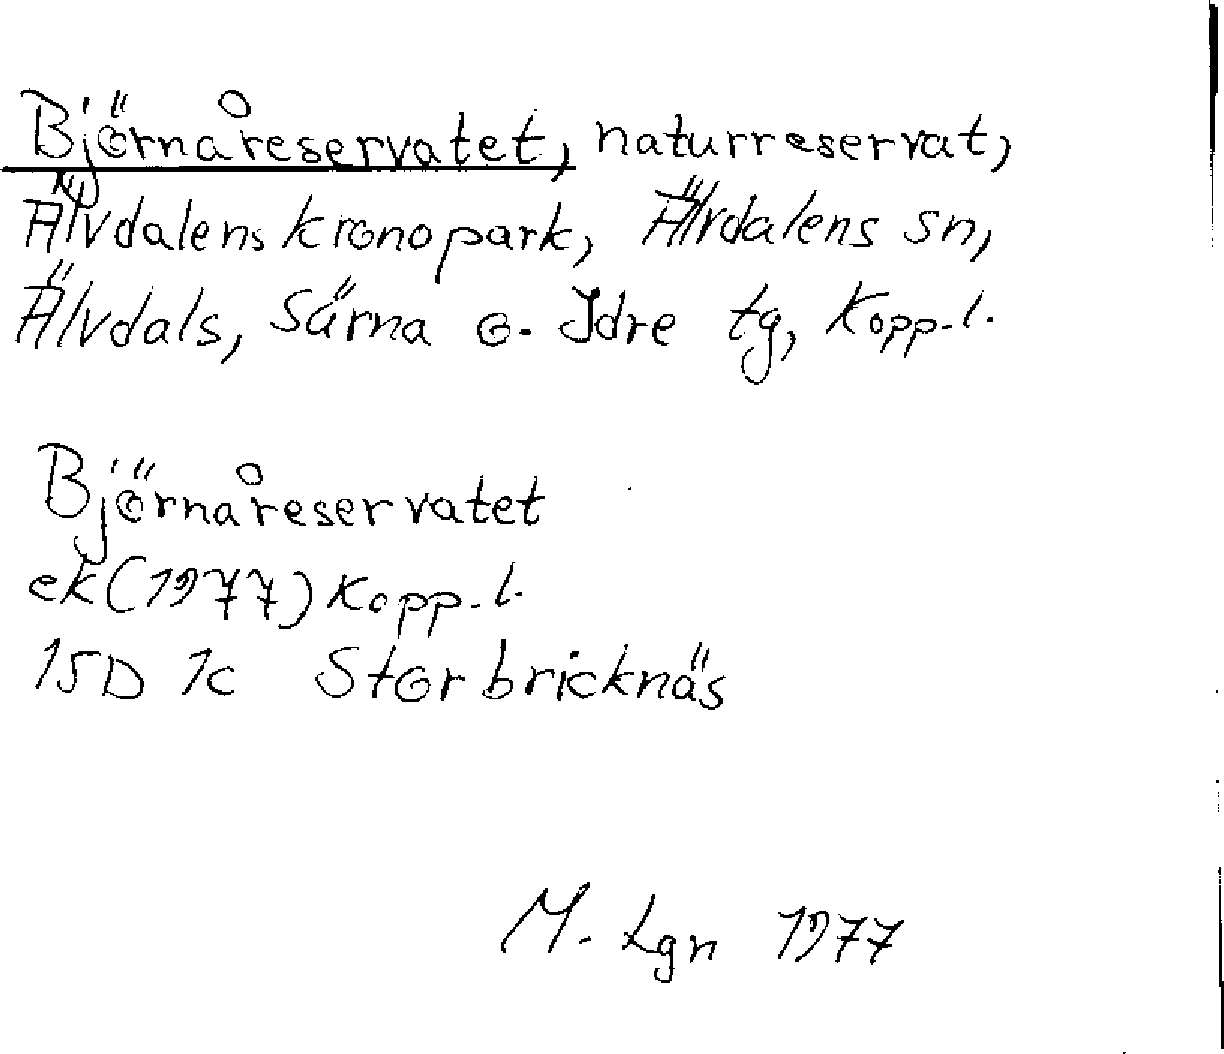 Björnåreservatet, naturreservat,
Älvdalens kronopark, Älvdalens sn,
Älvdals, Särna o. Idre tg, Kopp. l.
Björnåreservatet
ek (1977) Kopp. l.
15D 1c Storbricknäs
M. Lgn 1977